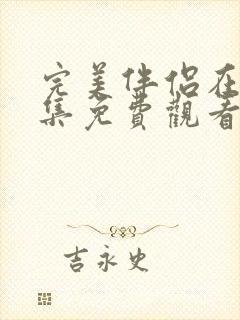 完美伴侶在
集免費觀看
吉永史